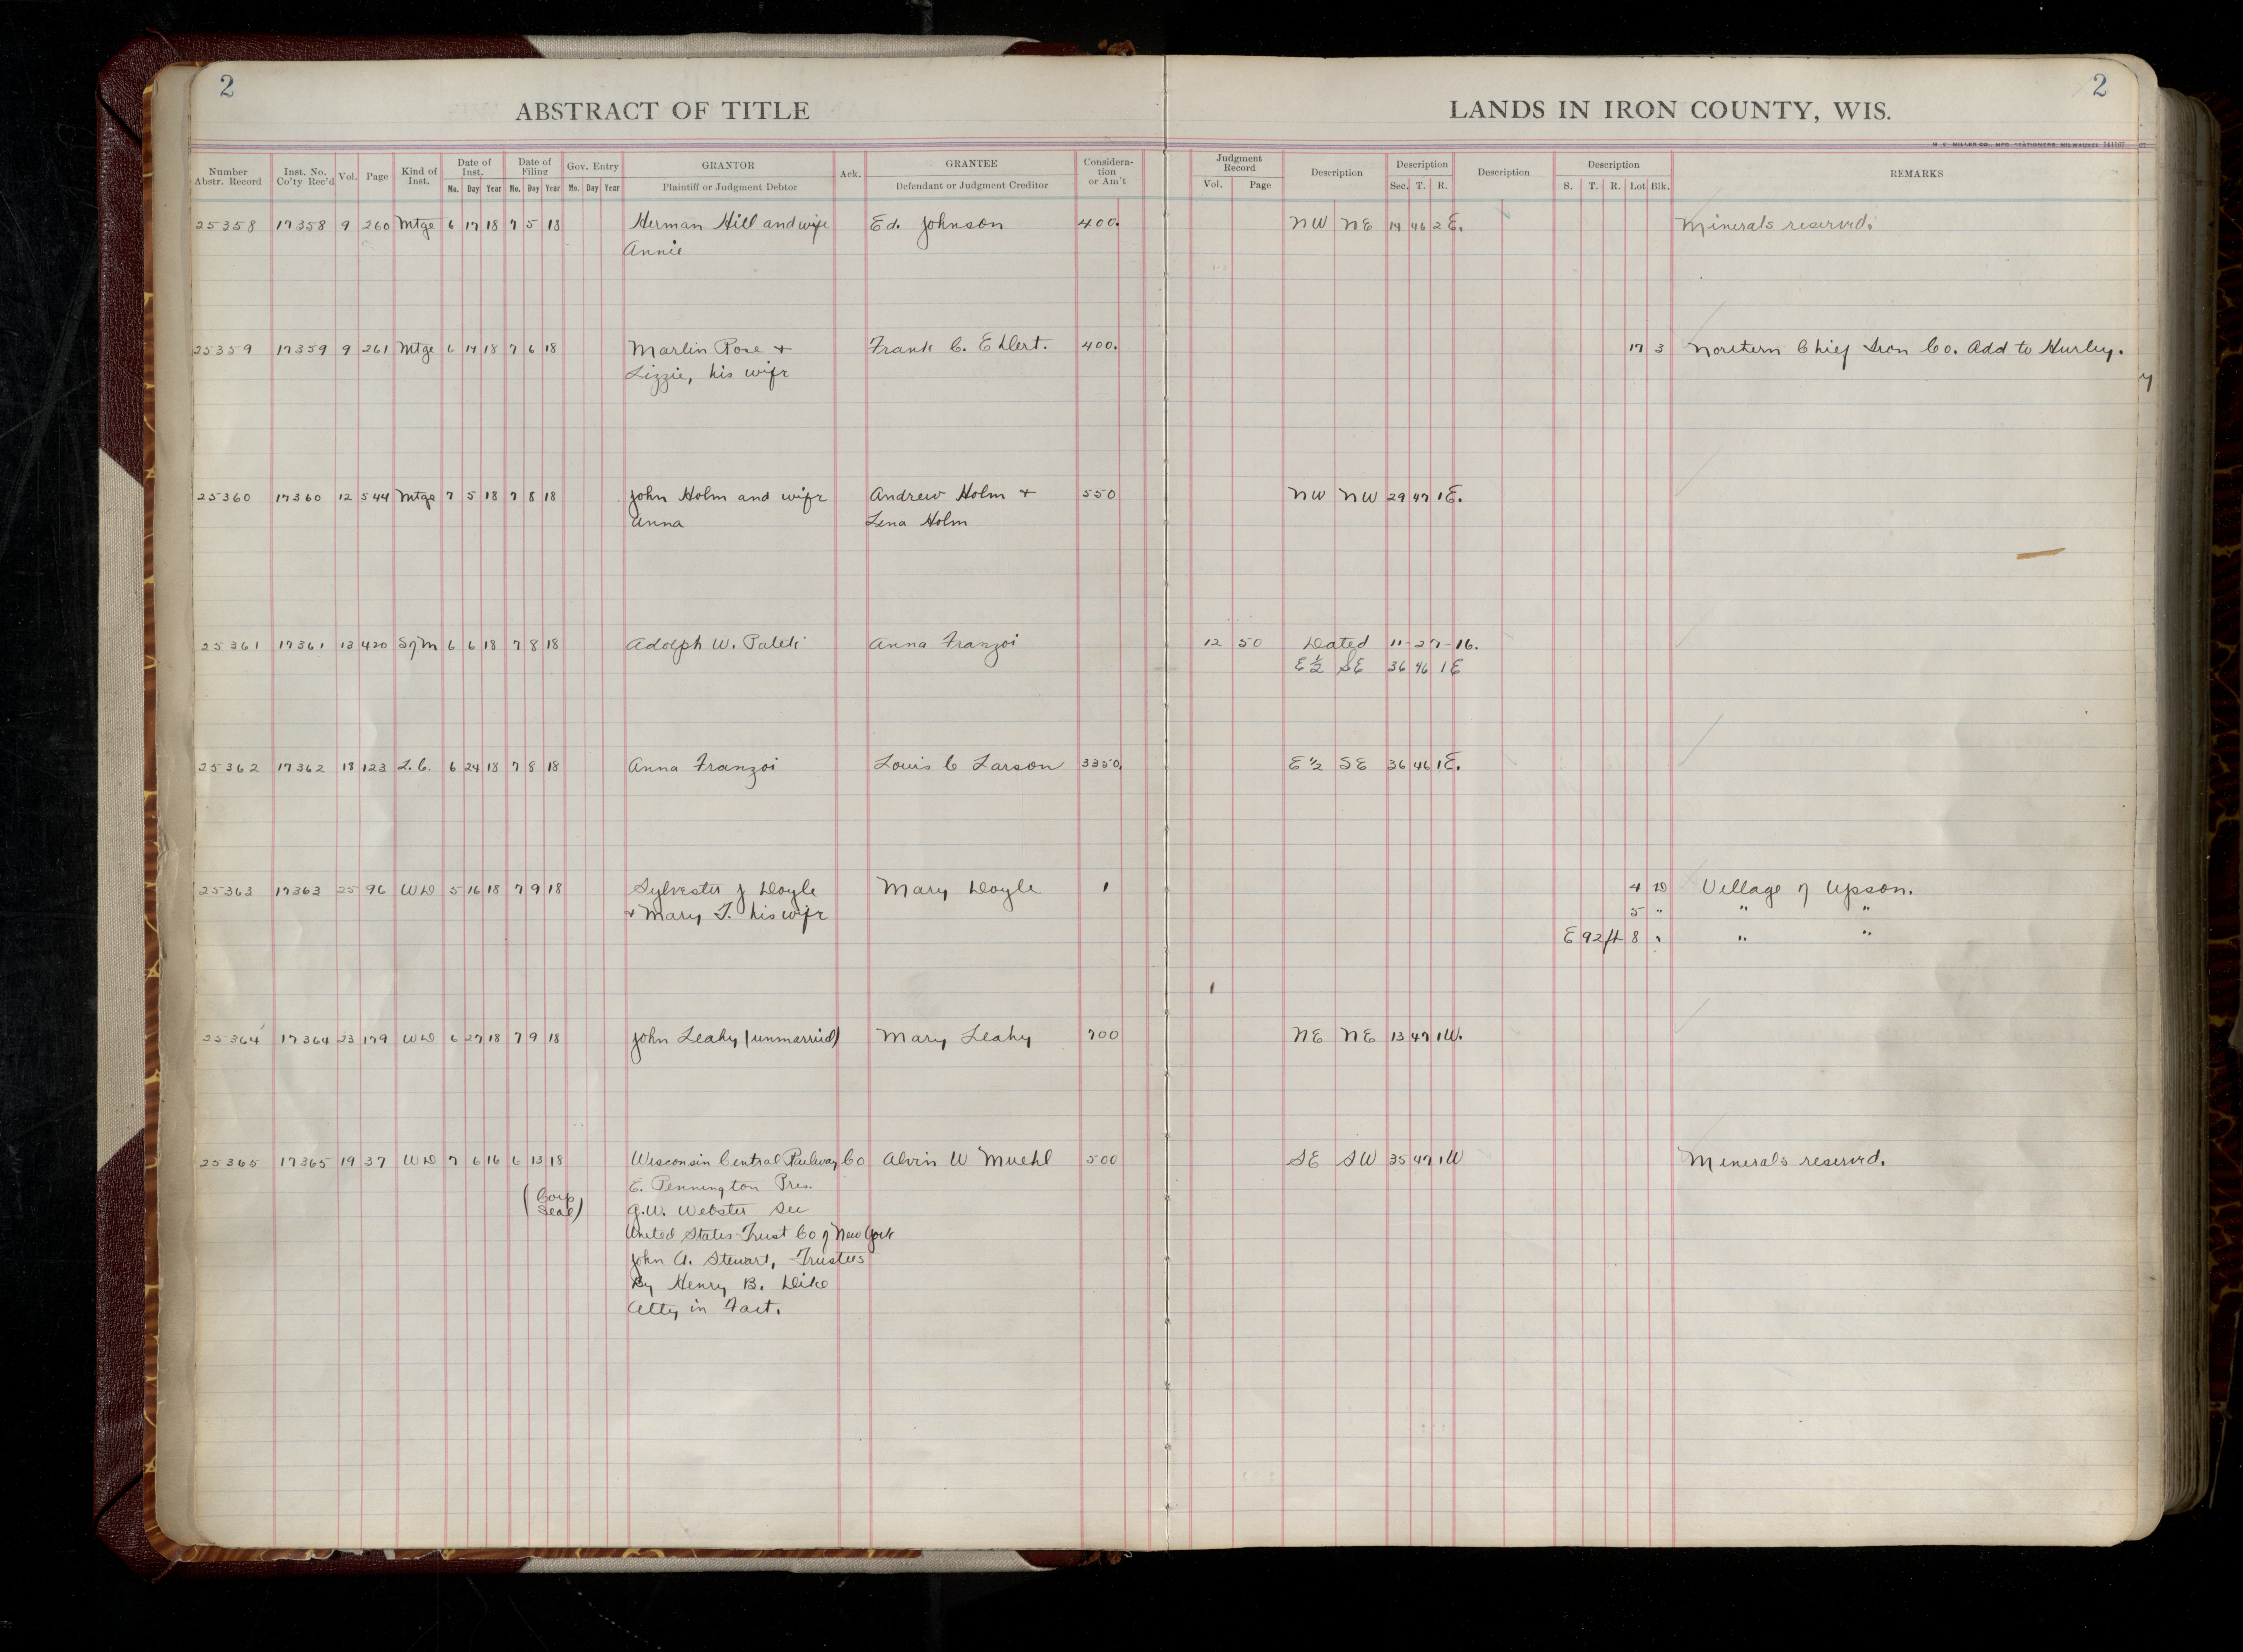 2
ABSTRACT OF TITLE
LANDS IN IRON COUNTY, WIS.
2
H. F. MILLER CO., MFG. STATIONERS, MILWAUKEE 141167
Number Abstr. Record | Inst. No. Co'ty Rec'd | Vol. | Page | Kind of Inst. | Date of Inst. Mo. Day Year | Date of Filing Mo. Day Year | Gov. Entry Mo. Day Year | GRANTOR Plaintiff or Judgment Debtor | Ack. | GRANTEE Defendant or Judgment Creditor | Consideration or Am't | Judgment Record Vol. Page | Description | Description Sec. T. R. | Description | Description S. T. R. Lot Blk. | REMARKS
25358 17358 9 260 Mtge 6 17 18 7 5 18 Herman Hill and wife Ed. Johnson 400. NW NE 14 46 2 E. Minerals reserved.
Annie
25359 17359 9 261 Mtge 6 14 18 7 6 18 Marlin Rose + Frank C. Ehlert. 400. 17 3 Northern Chief Iron Co. Add to Hurley.
Lizzie, his wife
y
25360 17360 12 544 Mtge 7 5 18 7 8 18 John Holm and wife Andrew Holm + 550 NW NW 29 47 1 E.
Anna Lena Holm
25361 17361 13 420 6 6 18 7 8 18 Adolph W. Anna Franzoi 12 50 Dated 11-27-16.
E½ SE 36 46 1 E
25362 17362 18 123 L.C. 6 24 18 7 8 18 Anna Franzoi Louis C Larson 3350. E ½ SE 36 46 1 E.
25363 17363 25 96 WD 5 16 18 7 9 18 Sylvester J Doyle Mary Doyle 1 4 D Village of Upson.
+ Mary T. his wife 5 " " "
E 92 ft 8 " " "
25364 17364 23 179 WD 6 27 18 7 9 18 John Leahy (unmarried) Mary Leahy 700 NE NE 13 47 1 W.
25365 17365 19 37 WD 7 6 16 6 13 18 Wisconsin Central Railway Co Alvin W Muehl 500 SE SW 35 47 1 W Minerals reserved.
(Corp E. Pennington Pres.
Seal) G.W. Webster Sec
United States Trust Co of New York
John A. Stewart, Trustees
By Henry B. Dike
Atty in Fact.